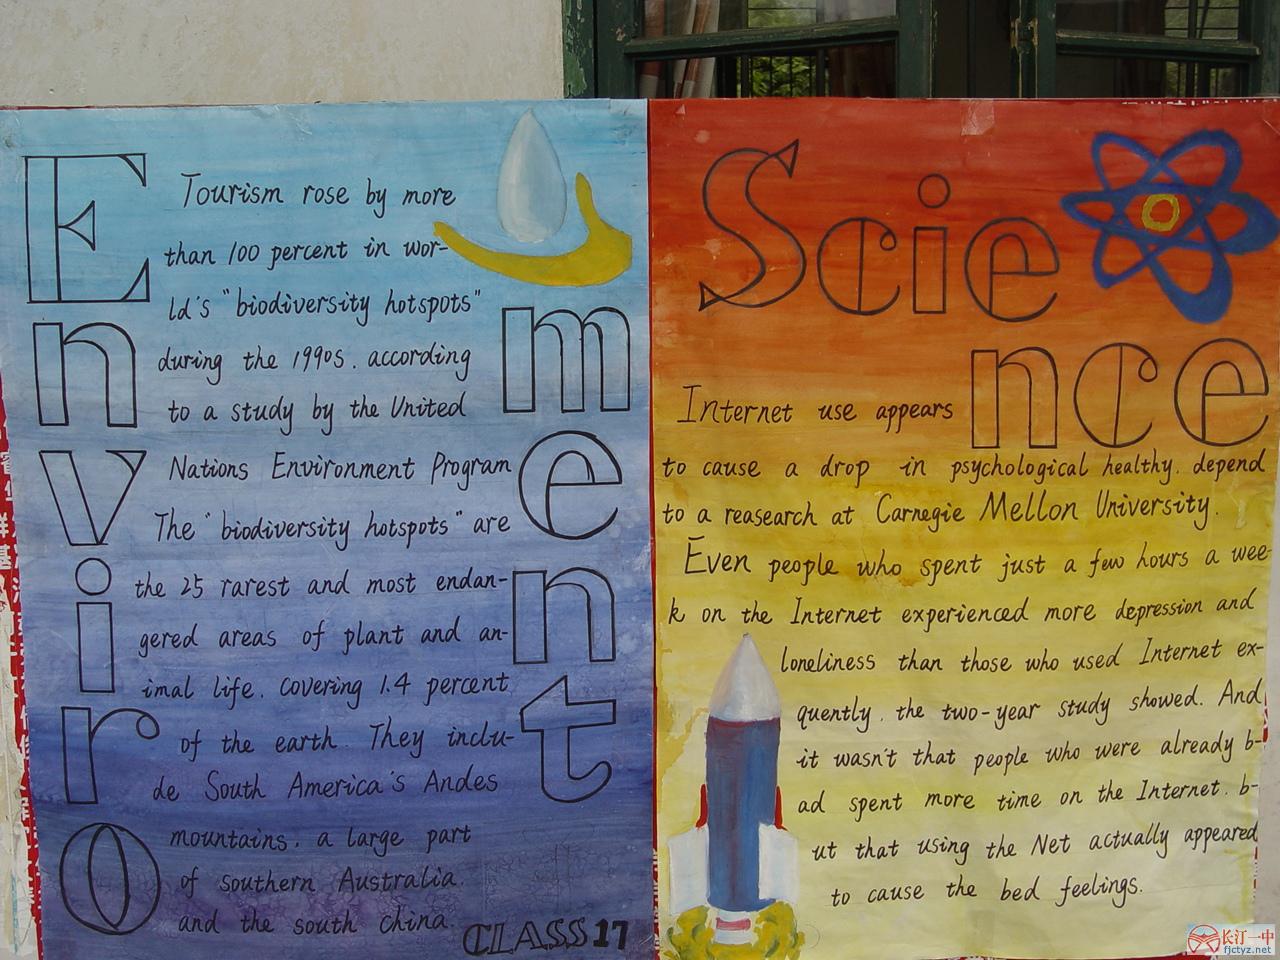 Environment
Tourism rose by more
than 100 percent in wor-
ld's "biodiversity hotspots"
during the 1990s. according
to a study by the United
Nations Environment Program
The "biodiversity hotspots" are
the 25 rarest and most endan-
gered areas of plant and an-
imal life. covering 1.4 percent
of the earth. They inclu-
de South America's Andes
mountains. a large part
of southern Australia.
and the south China.
CLASS 17
Scie
nce
Internet use appears
to cause a drop in psychological healthy. depend
to a reasearch at Carnegie Mellon University.
Even people who spent just a few hours a wee-
k on the Internet experienced more depression and
loneliness than those who used Internet ex-
quently. the two-year study showed. And
it wasn't that people who were already b-
ad spent more time on the Internet. b-
ut that using the Net actually appeared
to cause the bed feelings.
长汀一中
fjctyz.net